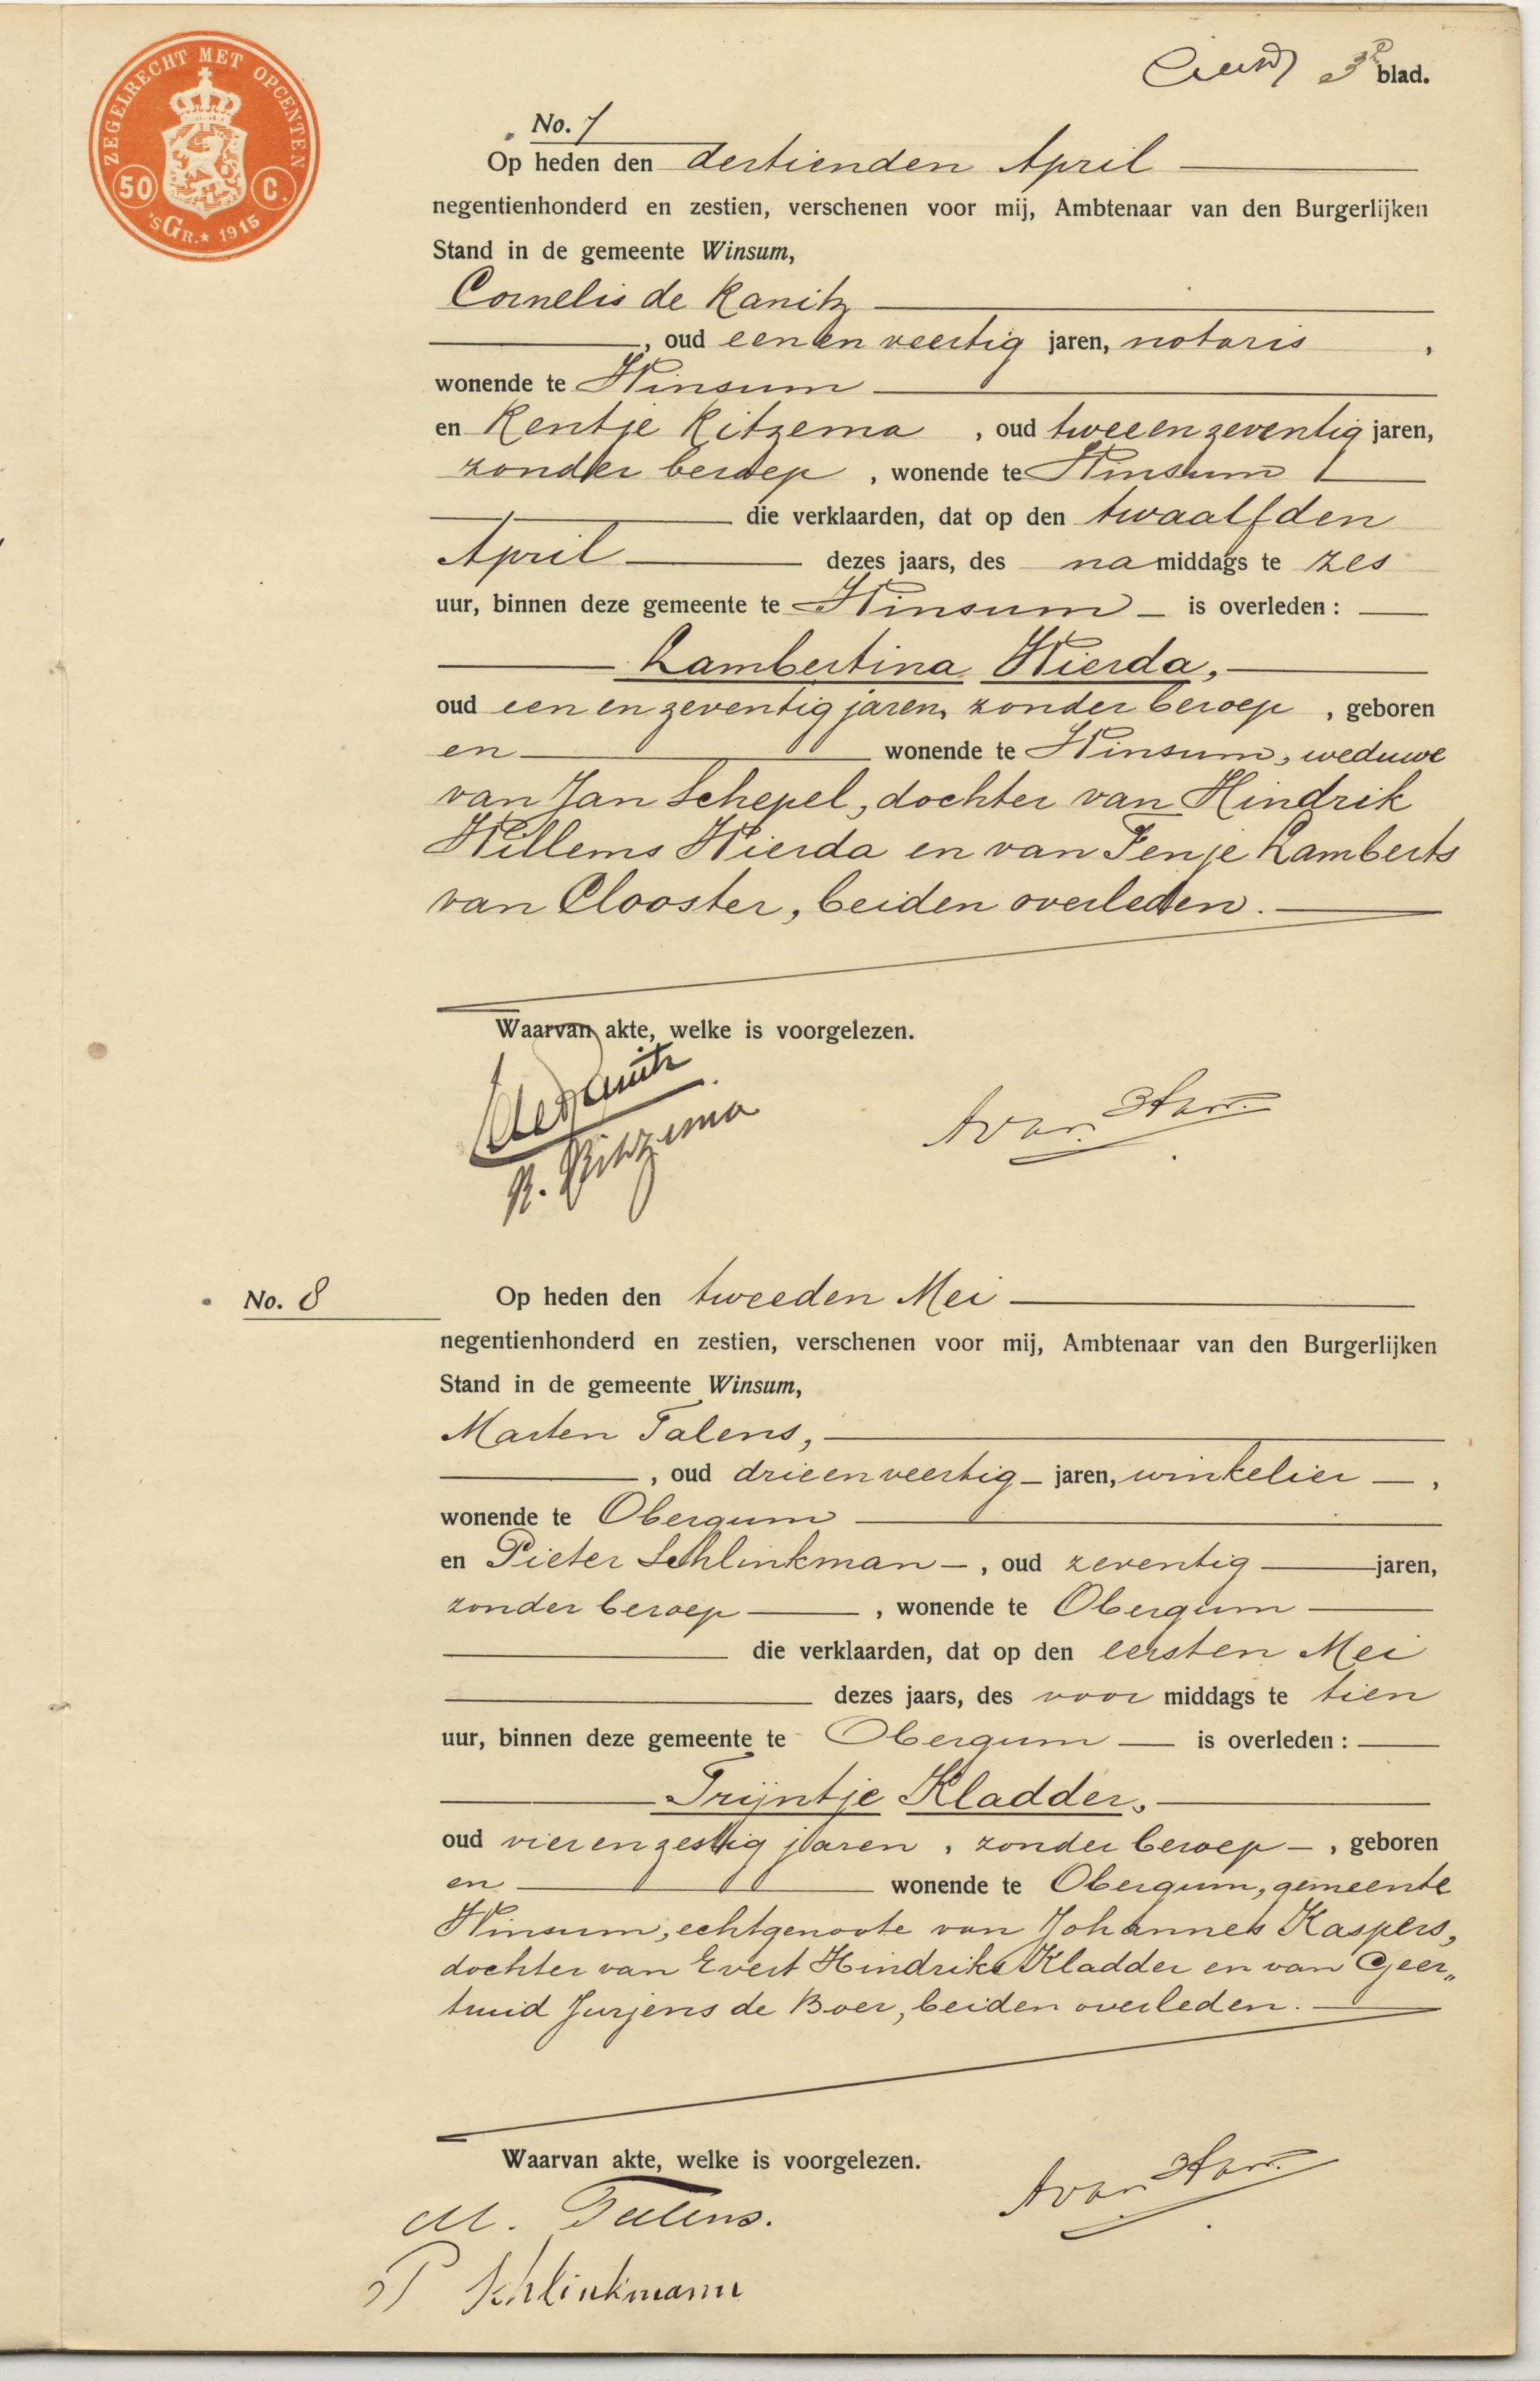 ZEGELRECHT MET OPCENTEN
50 C.
'sGR.★ 1915
3e blad.
No. 7
Op heden den dertienden April
negentienhonderd en zestien, verschenen voor mij, Ambtenaar van den Burgerlijken
Stand in de gemeente Winsum,
Cornelis de Ranitz
, oud een en veertig jaren, notaris ,
wonende te Winsum
en Rentje Ritzema , oud twee en zeventig jaren,
zonder beroep , wonende te Winsum
die verklaarden, dat op den twaalfden
April dezes jaars, des na middags te zes
uur, binnen deze gemeente te Winsum is overleden :
Lambertina Wierda,
oud een en zeventig jaren, zonder beroep , geboren
en wonende te Winsum, weduwe
van Jan Schepel, dochter van Hindrik
Willems Wierda en van Fenje Lamberts
van Clooster, beiden overleden.
Waarvan akte, welke is voorgelezen.
CdeRanitz
R. Ritzema
No. 8
Op heden den tweeden Mei
negentienhonderd en zestien, verschenen voor mij, Ambtenaar van den Burgerlijken
Stand in de gemeente Winsum,
Marten Talens,
, oud drie en veertig jaren, winkelier ,
wonende te Obergum
en Pieter Schlinkman , oud zeventig jaren,
zonder beroep , wonende te Obergum
die verklaarden, dat op den eersten Mei
dezes jaars, des voor middags te tien
uur, binnen deze gemeente te Obergum is overleden :
Trijntje Kladder,
oud vier en zestig jaren , zonder beroep , geboren
en wonende te Obergum, gemeente
Winsum, echtgenoote van Johannes Kaspers,
dochter van Evert Hindriks Kladder en van Geer„
truid Jurjens de Boer, beiden overleden.
Waarvan akte, welke is voorgelezen.
M. Talens.
P Schlinkmann